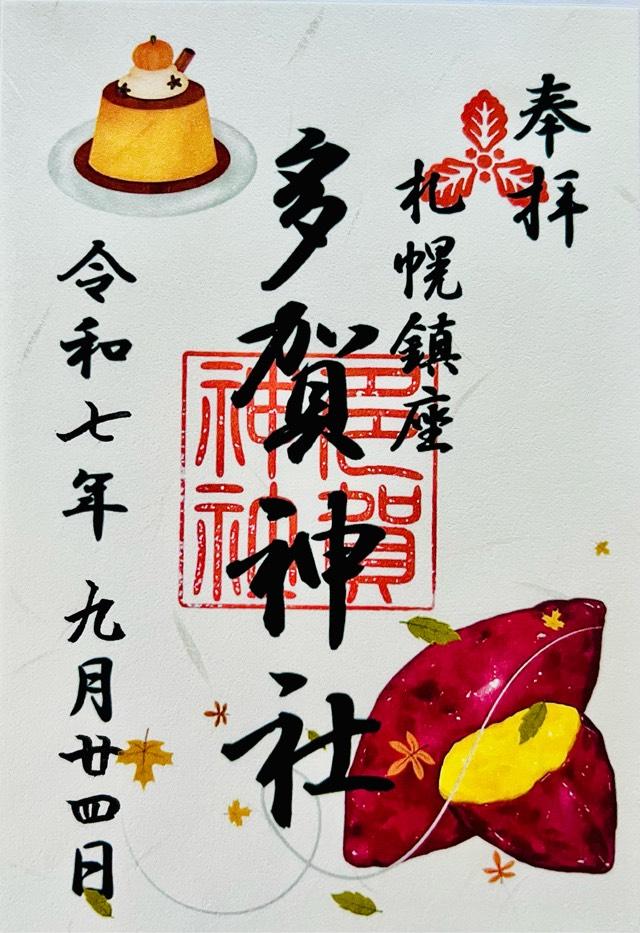 奉拝
札幌鎮座
多賀神社
令和七年 九月廿四日